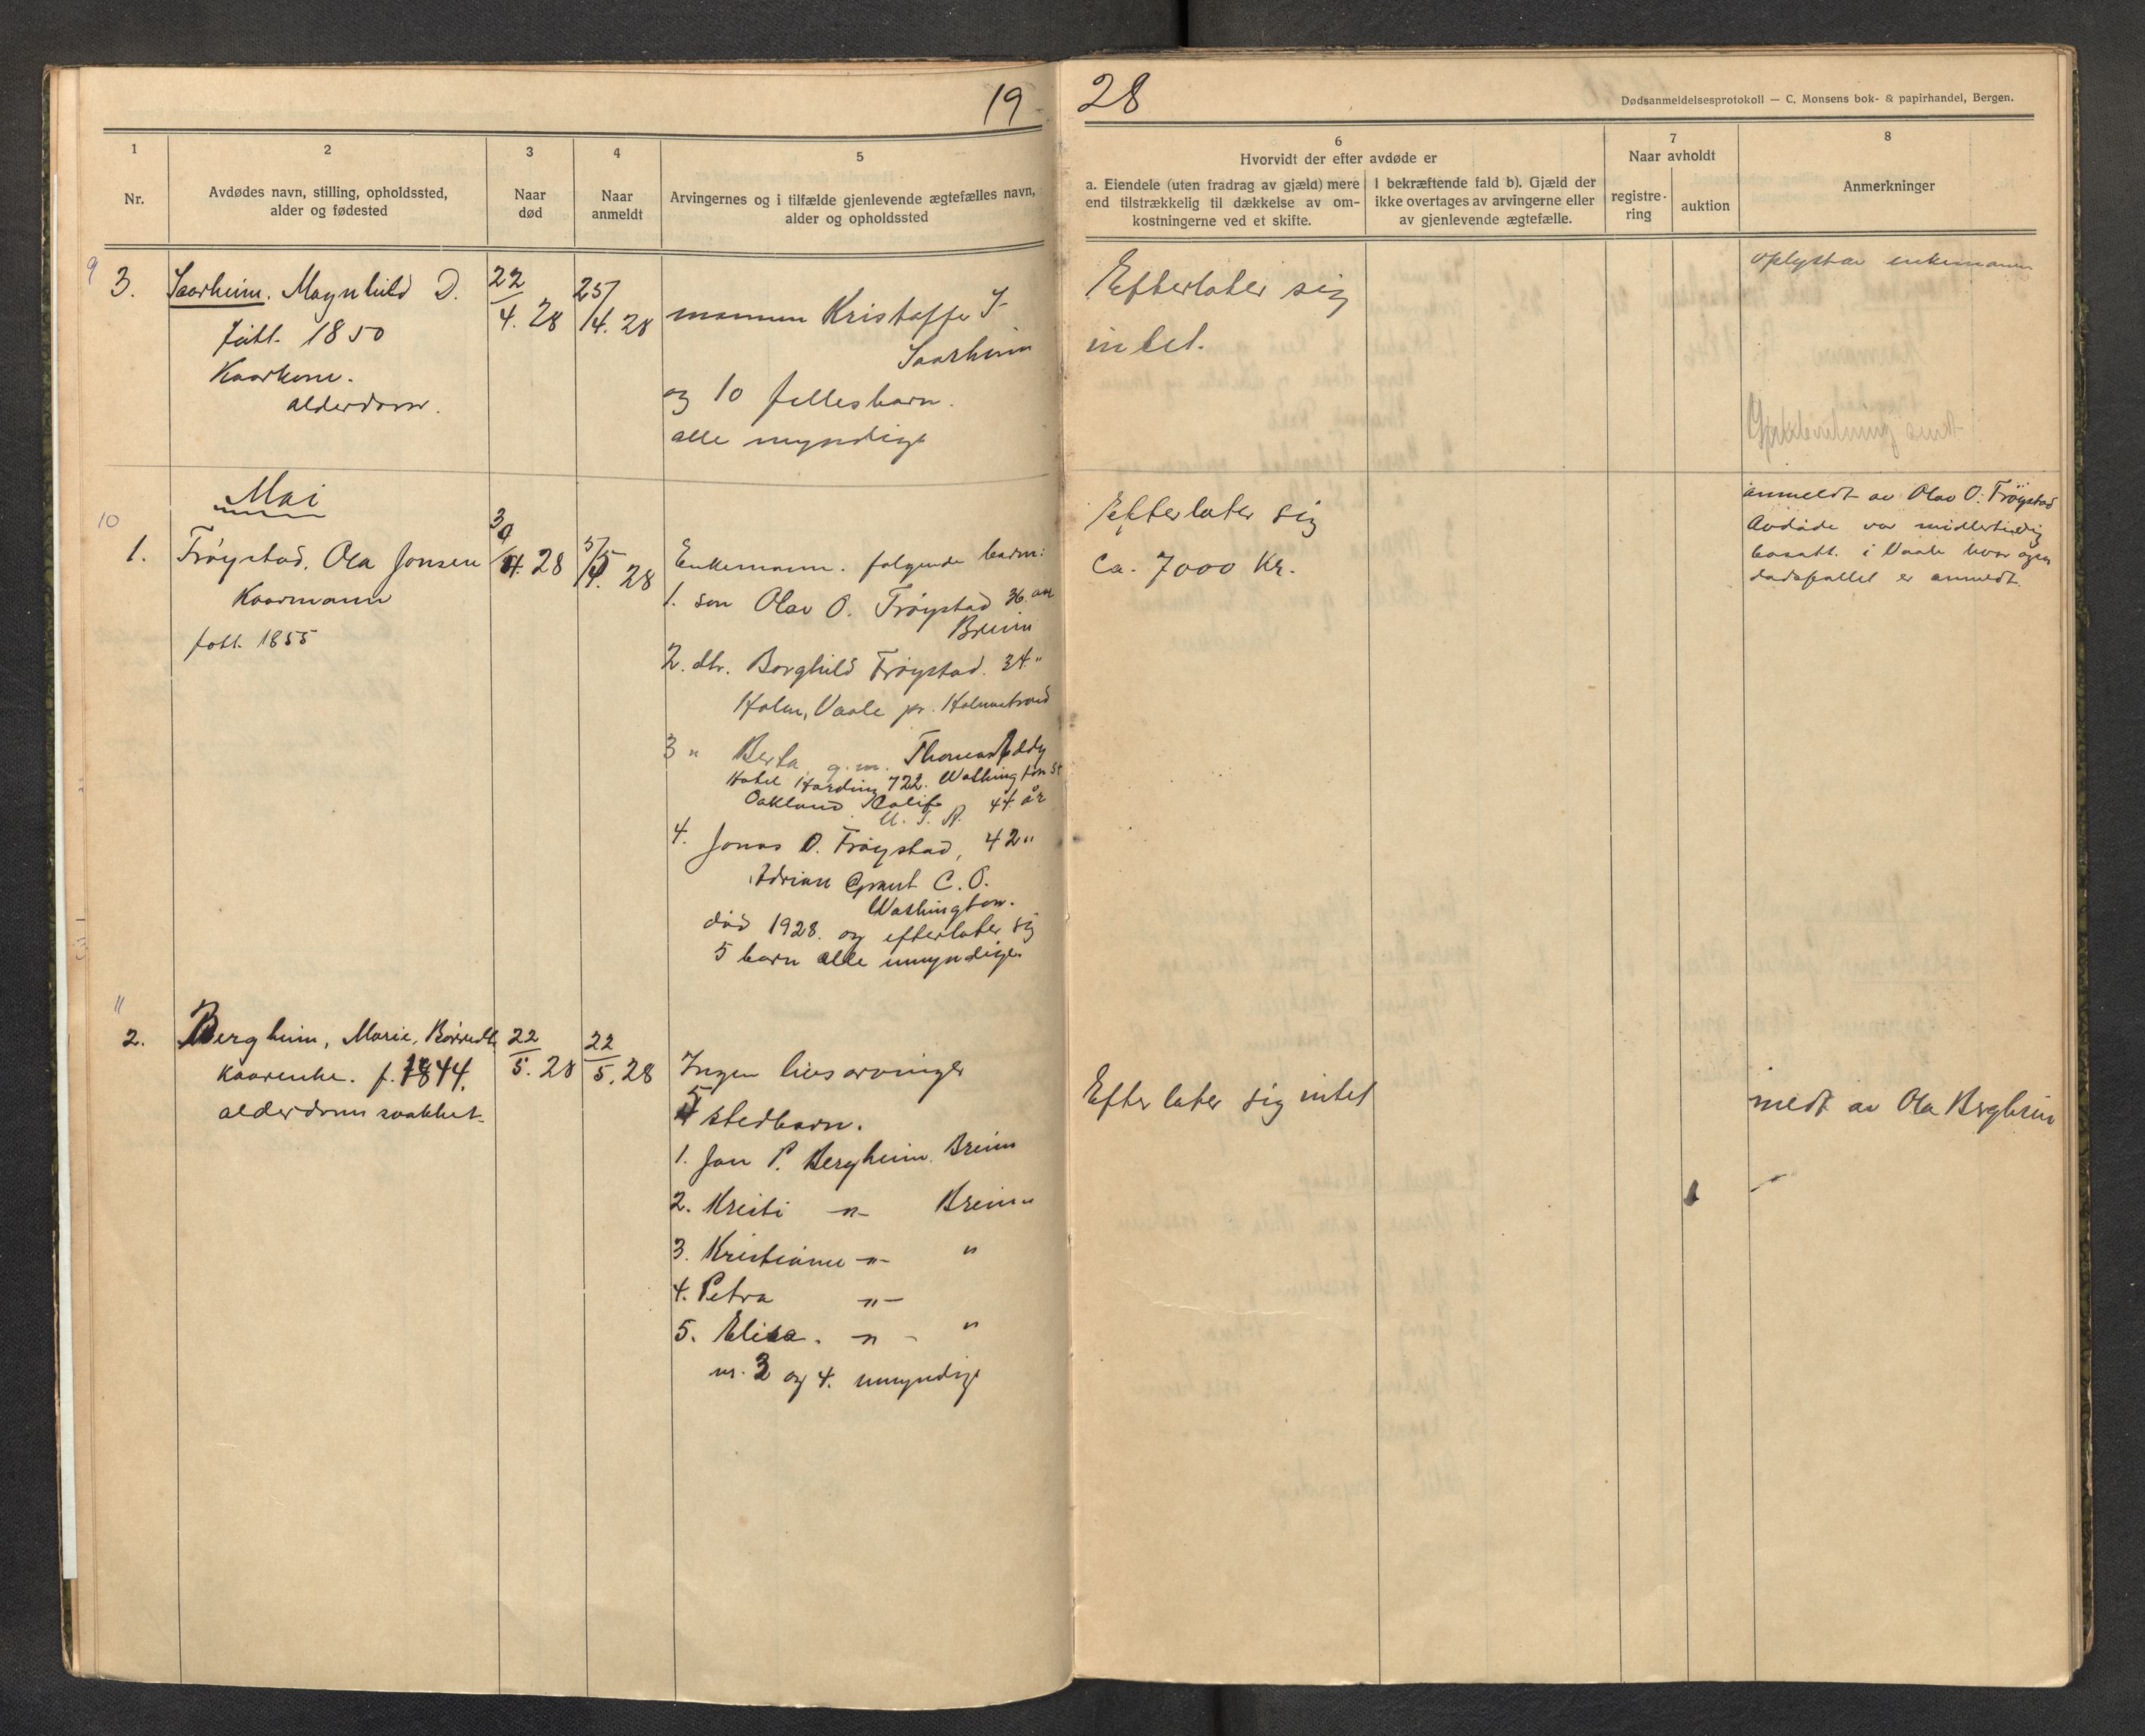 19
28
Dødsanmeldelsesprotokoll — C. Monsens bok- & papirhandel, Bergen.
1
Nr.
2
Avdødes navn, stilling, opholdssted,
alder og fødested
3
Naar
død
4
Naar
anmeldt
5
Arvingernes og i tilfælde gjenlevende ægtefælles navn,
alder og opholdssted
6
Hvorvidt der efter avdøde er
a. Eiendele (uten fradrag av gjæld) mere
end tilstrækkelig til dækkelse av om-
kostningerne ved et skifte.
I bekræftende fald b). Gjæld der
ikke overtages av arvingerne eller
av gjenlevende ægtefælle.
7
Naar avholdt
registre-
ring
auktion
8
Anmerkninger
9
3.
Saarheim. Magnhild D.
født. 1850
Kaarkone.
alderdom.
22/4. 28
25/4. 28
mannen Kristoffer J.
Saarheim
og 10 fellesbarn.
alle myndige
Efterlater sig
intet.
oplyst av enkemann
sendt
Mai
10
1.
Frøystad, Ola Jonsen
Kaarmann
født. 1855
30/4. 28
5/5. 28
Enkemann. følgende barn:
1. søn Olav O. Frøystad 36. aar
Breim
2. dtr. Borghild Frøystad. 34 "
Holm, Vaale pr. Holmestrand
3 " Berta g.m. Thomas Eddy
Hotel Harding 722. Washington St
Oakland Calif 44 år
U. S. A.
4. Jonas O. Frøystad, 42 "
Adrian Grant C. O.
Washington.
død 1928. og efterlater sig
5 barn alle umyndige
Efterlater sig
ca. 7000 Kr.
anmeldt av Olav O. Frøystad
Avdøde var midlertidig
bosatt. i Vaale hvor ogsaa
dødsfallet er anmeldt.
11
2.
Bergheim, Marie,
kaarenke. f. 1844.
alderdomssvakhet.
22/5. 28
22/5. 28
Ingen livsarvinger
5 stedbarn.
1. Jon P. Bergheim. Breim
2. Kristi -"- Breim
3. Kristiane -"- "
4. Petra -"-
5. Elisa. -"- "
nr. 3 og 4. umyndige
Efterlater sig intet
meldt av Ola Bergheim